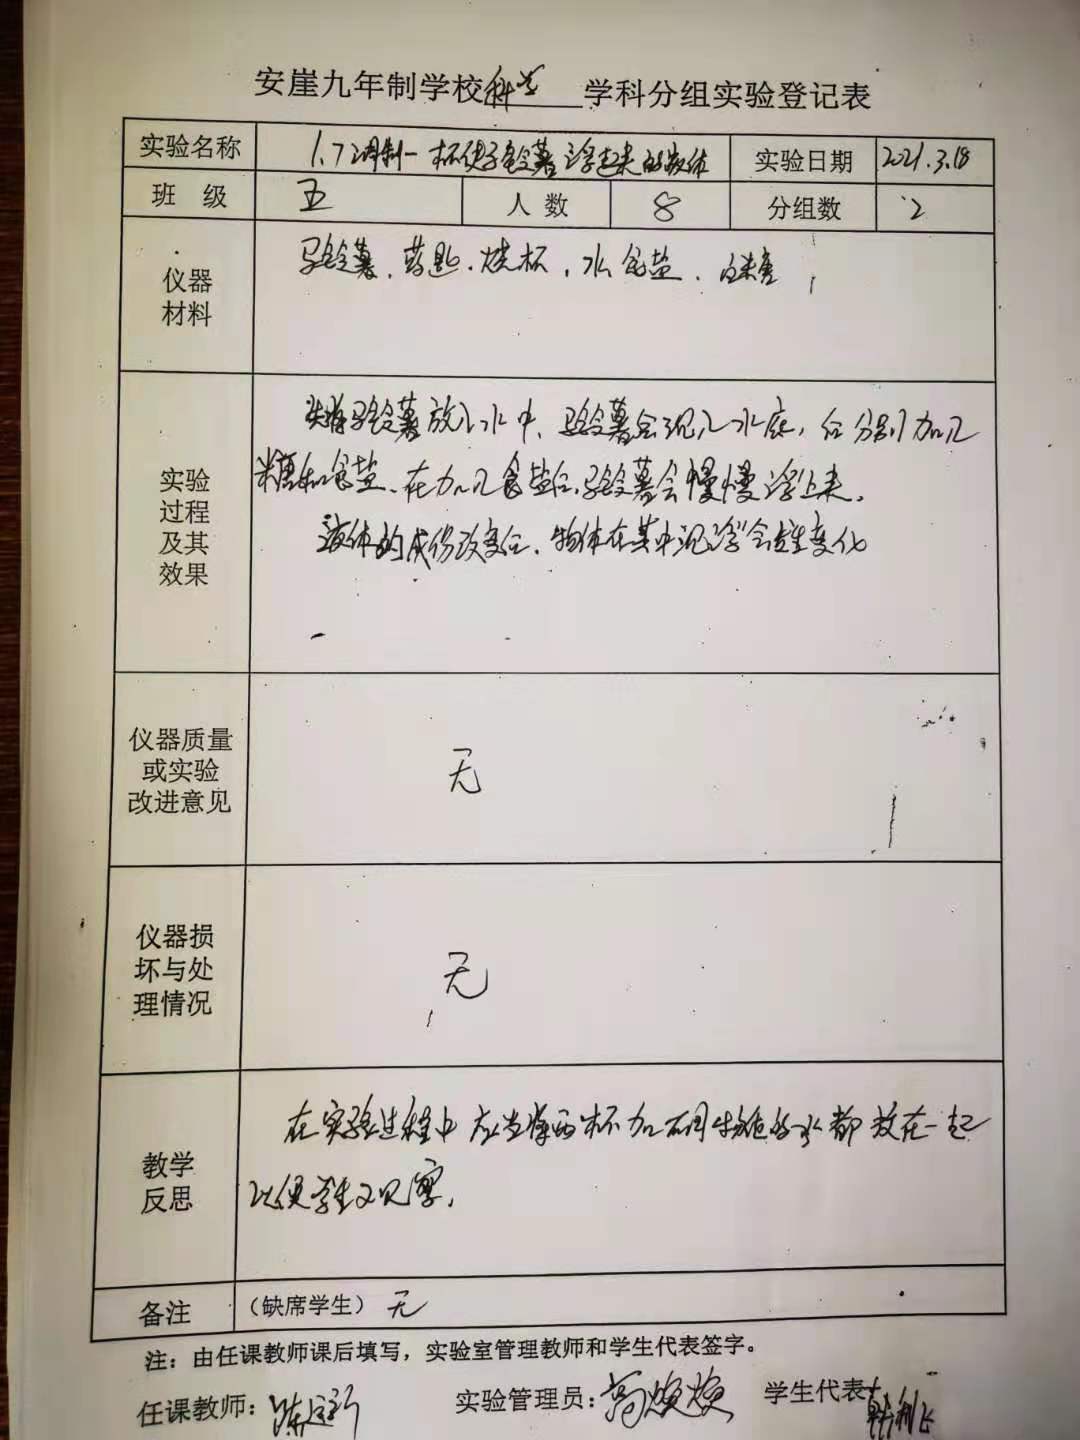 安崖九年制学校科学 学科分组实验登记表
实验名称 1.7 调制一杯使马铃薯浮起来的液体 实验日期 2021.3.18
班 级 五 人 数 8 分组数 2
仪器
材料
马铃薯、药匙、烧杯、水 食盐、白糖
实验
过程
及其
效果
先将马铃薯放入水中、马铃薯会沉入水底,后分别加入
糖和食盐、在加入食盐后,马铃薯会慢慢浮上来。
液体的成份改变后、物体在其中沉浮会发生变化
仪器质量
或实验
改进意见
无
仪器损
坏与处
理情况
无
教学
反思
在实验过程中应当将两杯加不同物质的水都放在一起
以便学生观察.
备注 (缺席学生) 无
注:由任课教师课后填写,实验室管理教师和学生代表签字。
任课教师: 实验管理员:高焕焕 学生代表